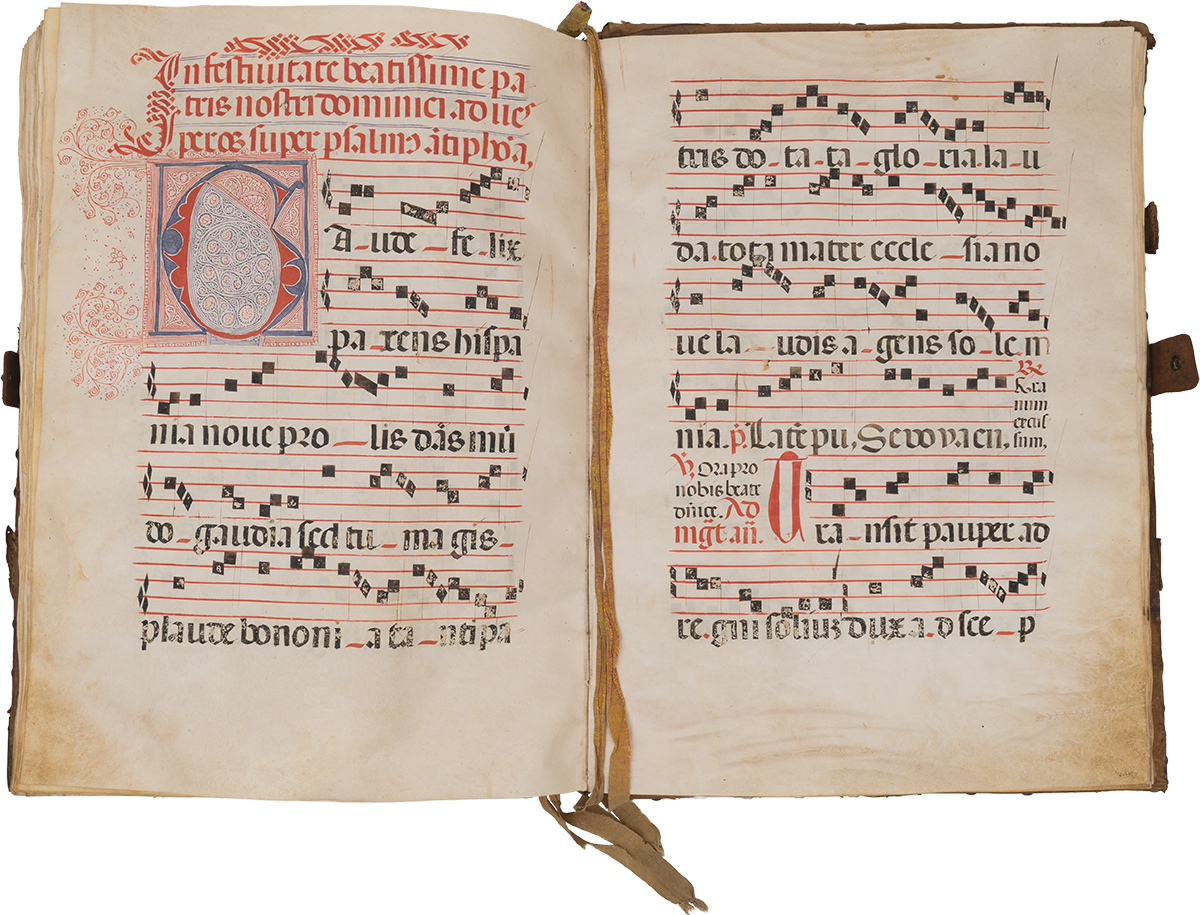 In festivitate beatissime pa
tris nostri dominici. ad ves
peras super psalmos. antiphona,
GA-ude - fe - lix
pa - rens hispa
nia nove pro - lis dans mu
do - gaudia sed tu - ma gis -
plaude bononi - a ta - nti pa
tris do - ta - ta - glo - ria. la - u
da. tota mater eccle - sia no
ve la - udis a - gens so - le. m
nia. p̄. Laudate pu, Sevovaeu,
℟ Gra
num
excus
sum,
℣. Ora pro
nobis beate
dn̄ice. Ad
mg̃t añ. Tra - nsit pauper ad
re. gni solius dux a. d sce - p